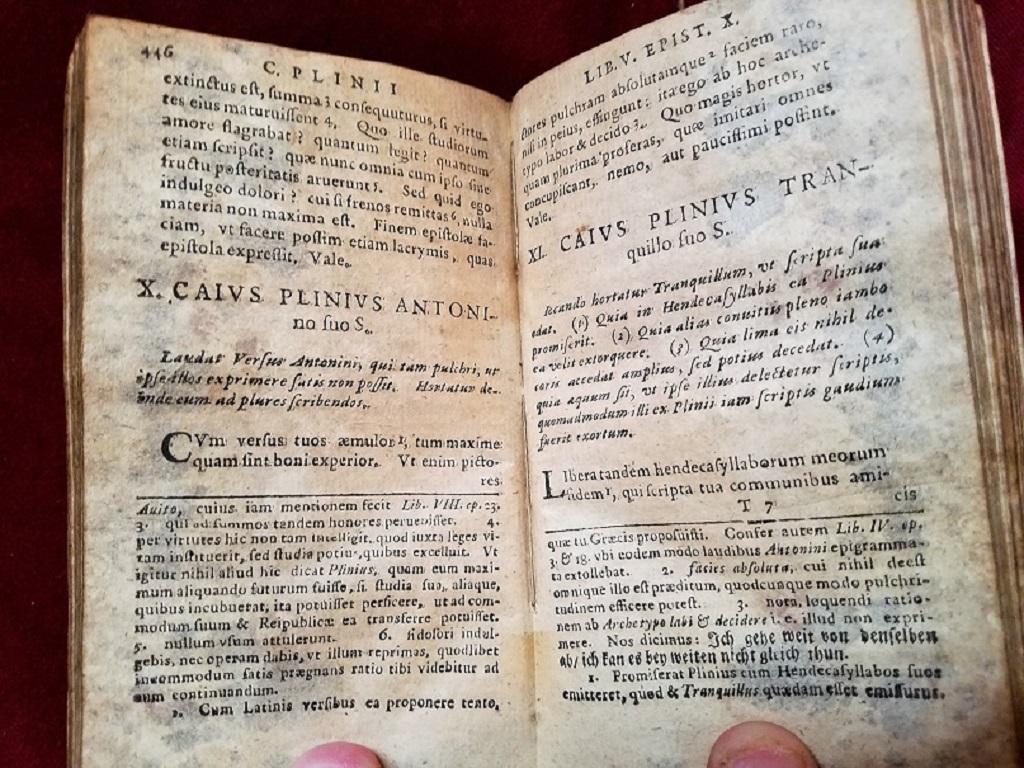 446
C. PLINII
extinctus est, summa 3 consequuturus, si virtu-
tes eius maturuissent 4. Quo ille studiorum
amore flagrabat? quantum legit? quantum
etiam scripsit? quæ nunc omnia cum ipso sine
fructu posteritatis aruerunt 5. Sed quid ego
indulgeo dolori? cui si frenos remittas 6, nulla
materia non maxima est. Finem epistolæ fa-
ciam, vt facere possim etiam lacrymis, quas
epistola expressit. Vale.
X. CAIVS PLINIVS ANTONI-
no suo S.
Laudat Versus Antonini, qui tam pulchri, ut
ipse illos exprimere satis non possit. Hortatur de-
inde eum ad plures scribendos.
CVm versus tuos æmulor 1, tum maxime
quam sint boni experior. Vt enim picto-
res
Auito, cuius iam mentionem fecit Lib. VIII. ep. 23.
3. qui ad summos tandem honores peruenisset. 4.
per virtutes hic non tam intelligit, quod iuxta leges vi-
tam instituerit, sed studia potius, quibus excelluit. Vt
igitur nihil aliud hic dicat Plinius, quam eum maxi-
mum aliquando futurum fuisse, si studia sua, aliaque,
quibus incubuerat, ita potuisset persicere, ut ad com-
modum suum & Reipublicæ ea transferre potuisset.
5. nullum vsum attulerunt. 6. si dolori indul-
gebis, nec operam dabis, vt illum reprimas, quodlibet
incommodum satis prægnans ratio tibi videbitur ad
eum continuandum.
1. Cum Latinis versibus ea proponere tento,
LIB. V. EPIST. X.
ctores pulchram absolutamque 2 faciem raro,
nisi in peius, effingunt: ita ego ab hoc arche-
typo labor & decido 3. Quo magis hortor, vt
quam plurima proferas, quæ imitari omnes
concupiscant, nemo, aut paucissimi possint.
Vale.
XI. CAIVS PLINIVS TRAN-
quillo suo S.
Iocando hortatur Tranquillum, ut scripta sua
edat. (1) Quia in Hendecasyllabis ea Plinius
promiserit. (2) Quia alias conuitiis pleno iambo
ea velit extorquere. (3) Quia lima eis nihil de-
coris accedat amplius, sed potius decedat. (4)
quia æquum sit, vt ipse illius delectetur scriptis,
quemadmodum illi ex Plinii iam scriptis gaudium
fuerit exortum.
LIbera tandem hendecasyllaborum meorum
fidem 1, qui scripta tua communibus ami-
T 7
cis
quæ tu Græcis proposuisti. Confer autem Lib. IV. ep.
3. & 18. vbi eodem modo laudibus Antonini epigramma-
ta extollebat. 2. facies absoluta, cui nihil deest
omnique illo est præditum, quodcunque modo pulchri-
tudinem efficere potest. 3. nota, loquendi ratio-
nem ab Archetypo labi & decidere i. e. illud non expri-
mere. Nos dicimus: Ich gehe weit von denselben
ab/ ich kan es bey weiten nicht gleich thun.
1. Promiserat Plinius cum Hendecasyllabos suos
emitteret, quod & Tranquillus quædam esset emissurus.